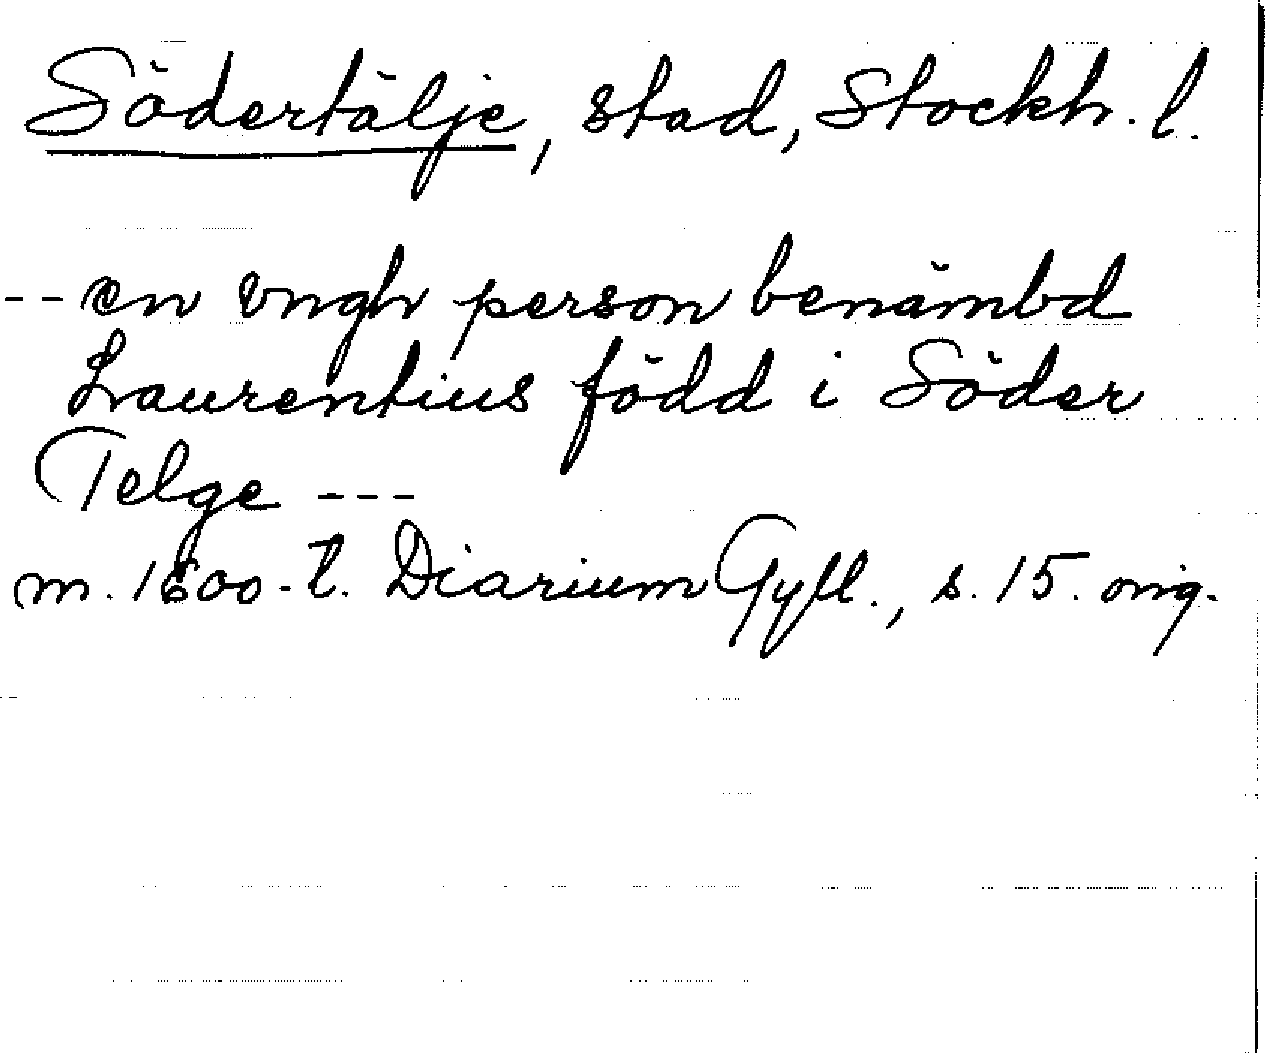 Södertälje, stad, Stockh. l.
-- en vngh person benämbd
Laurentius född i Söder
Telge ---
m. 1600-t. Diarium Gyll., s. 15. orig.